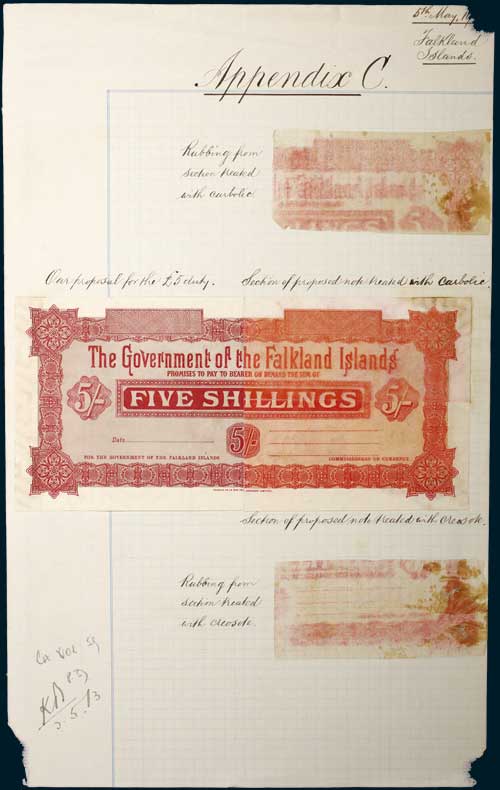 5th May, 19
Falkland
Islands.
Appendix C.
Rubbing from
section treated
with carbolic
Falkland Islands
SHILLINGS
Our proposal for the £5 duty.
Section of proposed note treated with carbolic.
The Government of the Falkland Islands
PROMISES TO PAY TO BEARER ON DEMAND THE SUM OF
5/-
FIVE SHILLINGS
5/-
Date
5/-
FOR THE GOVERNMENT OF THE FALKLAND ISLANDS
COMMISSIONERS OF CURRENCY.
Section of proposed note treated with creosote.
Rubbing from
section treated
with creosote.